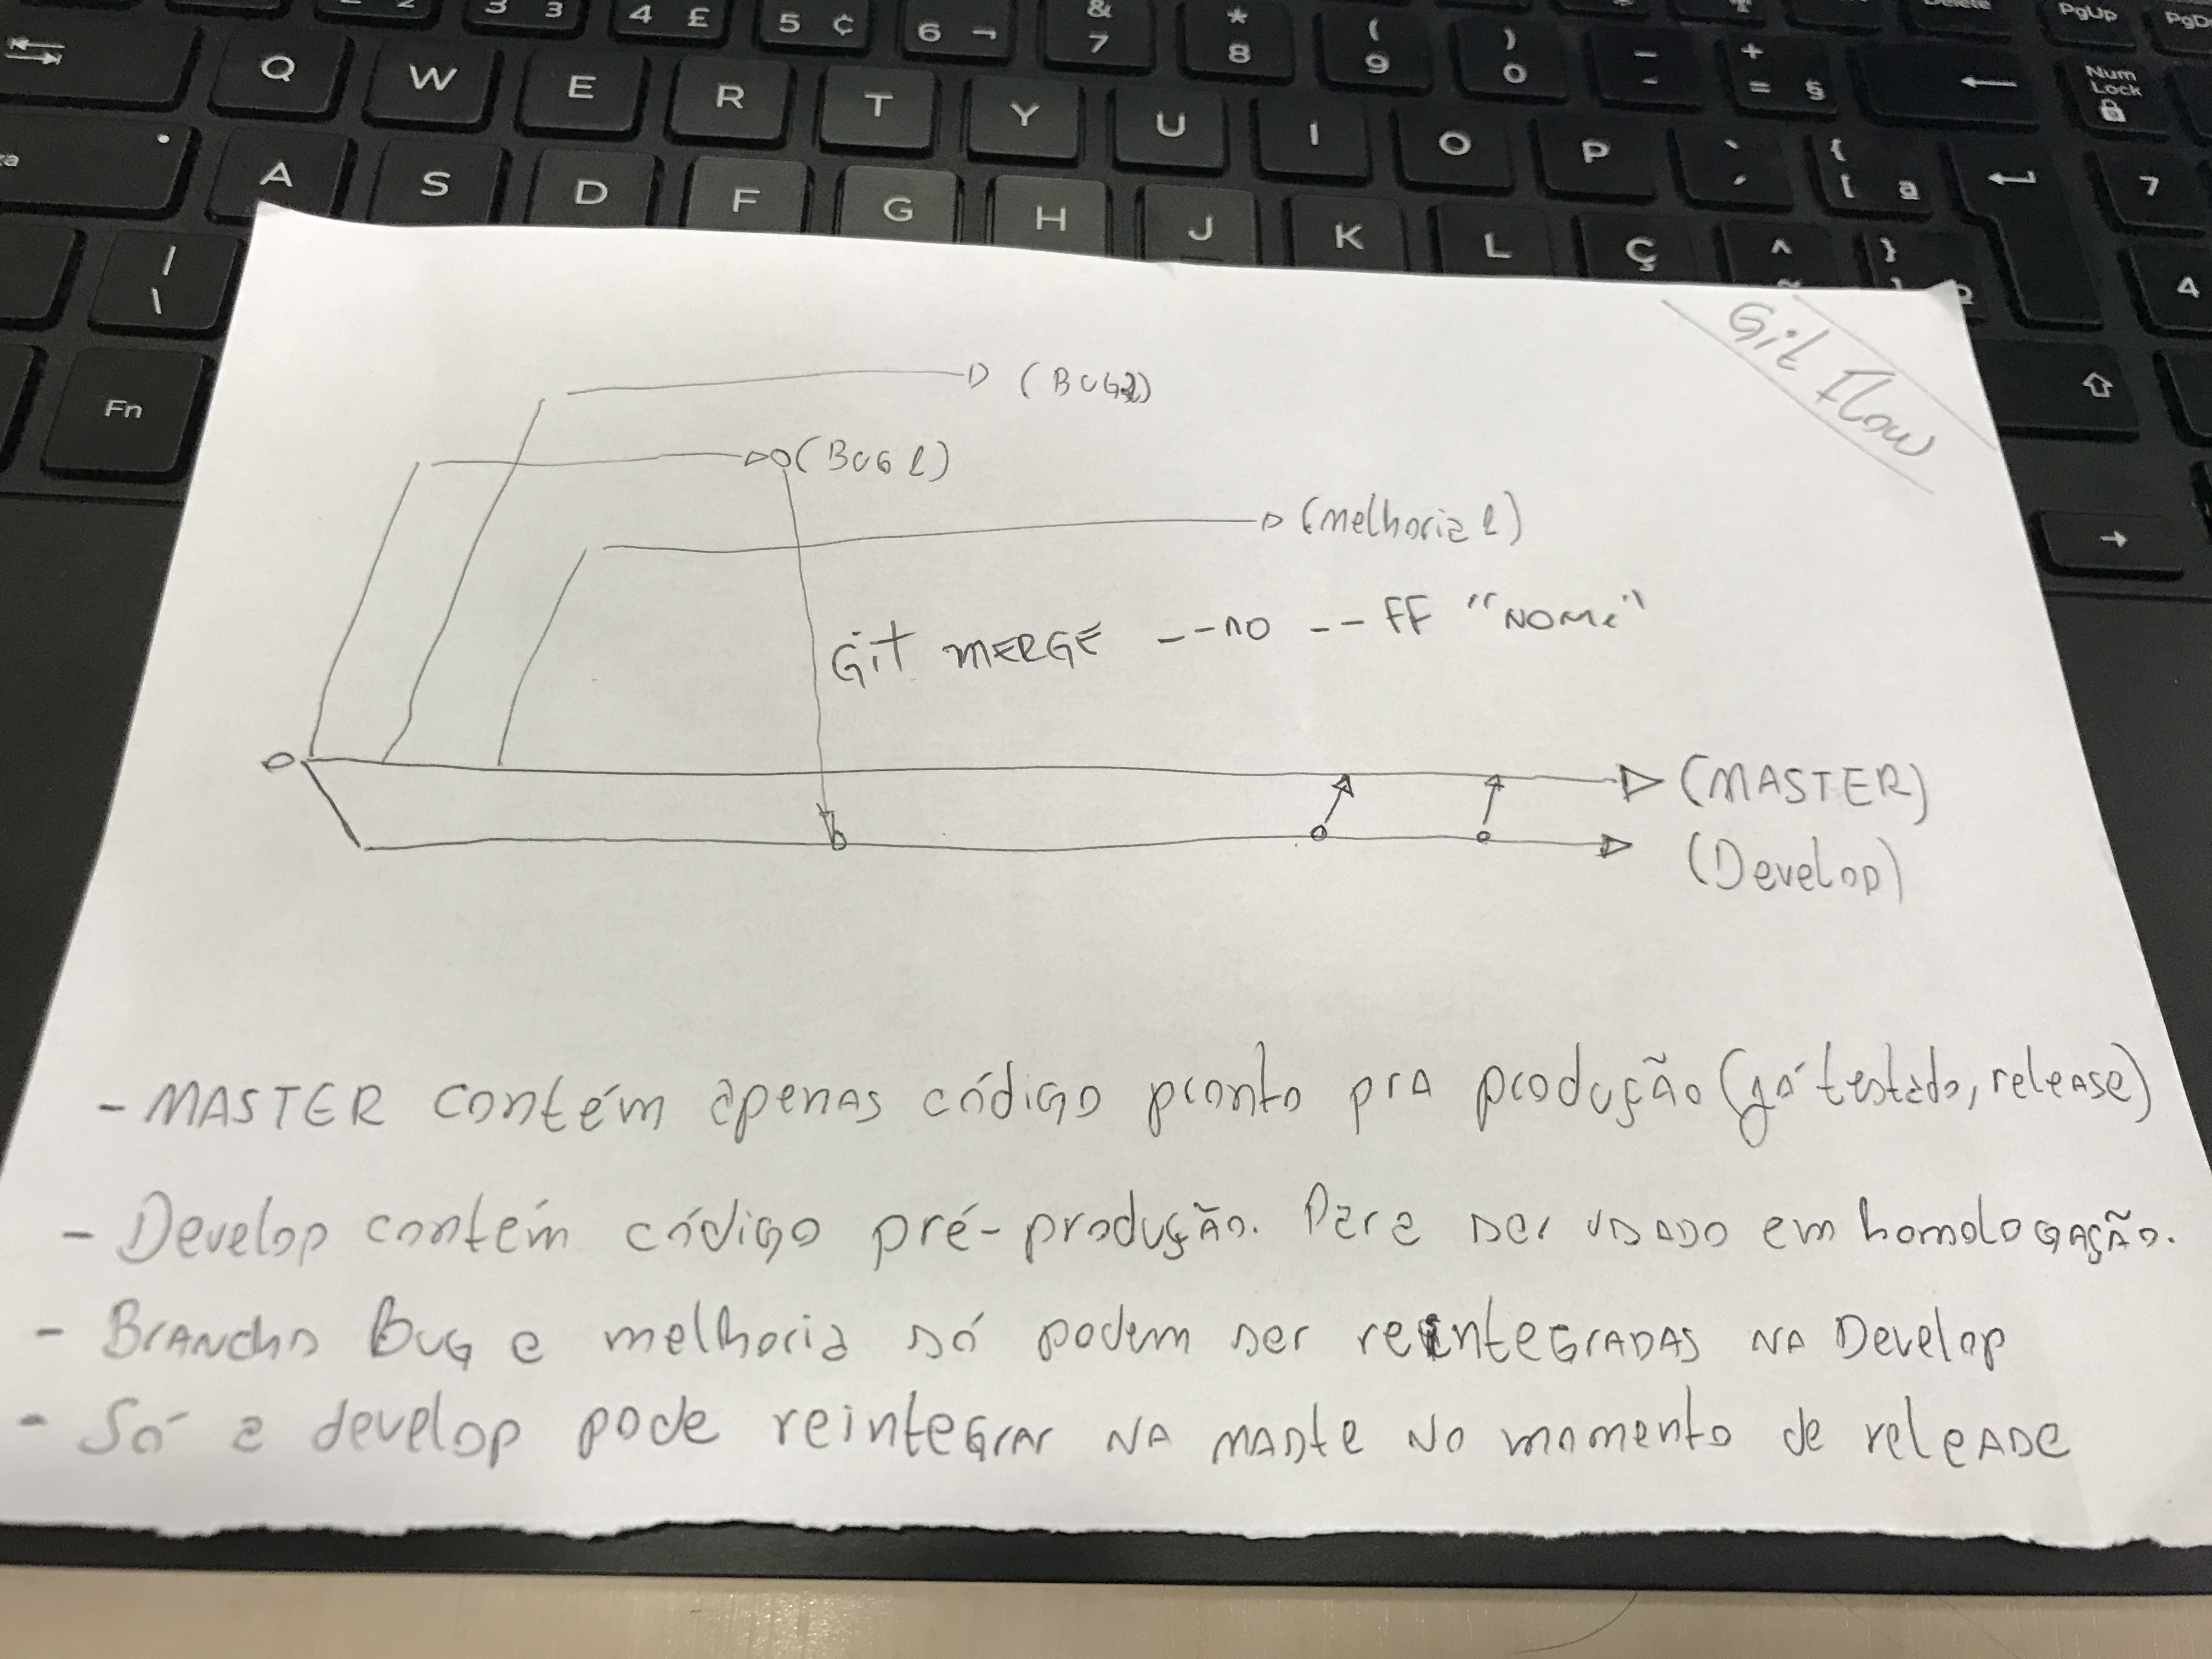 & 7
* 8
( 9
) 0
5 ¢
6 ¬
4 £
3 3
+ = §
PgUp
Num Lock
Q W E R T Y U I O P
{ [ ª
7
A S D F G H J K L Ç ^ ~ }
4
| \
Fn
Git Flow
(BUG2)
(BUG 1)
(melhoria 1)
Git MERGE --no --FF "NOME"
(MASTER)
(Develop)
- MASTER contém apenas código pronto prA produção (já testado, release)
- Develop contém código pré-produção. Para ser usado em homologação.
- Branchs Bug e melhoria só podem ser reintegradas na Develop
- Só a develop pode reintegrar na maste no momento de release